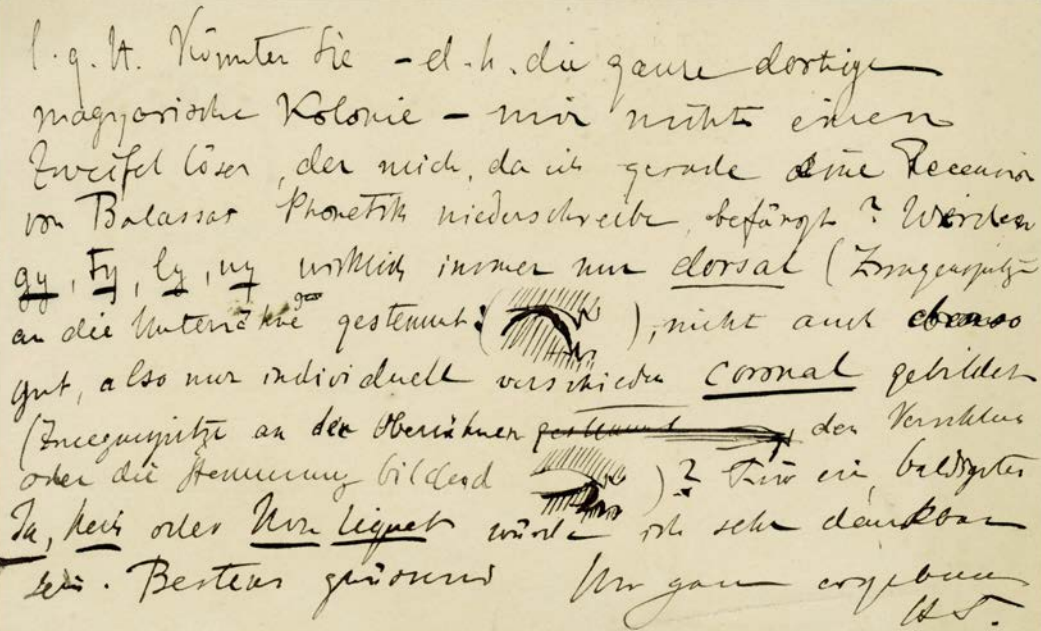 l. g. H. Könnten Sie – d. h. die ganze dortige
magyarische Kolonie – mir nicht einen
Zweifel lösen, der mich, da ich gerade eine Recension
von Balassas Phonetik niederschreibe, befängt? Werden
gy, ty, ly, ny wirklich immer nur dorsal (Zungenspitze
an die Unterzähne gestemmt: ( ), nicht auch ebenso
gut, also nur individuell verschieden coronal gebildet
(Zungenspitze an den Oberzähnen gestemmt den Verschluss
oder die Hemmung bildend )? Für ein baldigstes
Ja, Nein oder Non liquet würde ich sehr dankbar
sein. Bestens grüssend Ihr ganz ergebener
H S.